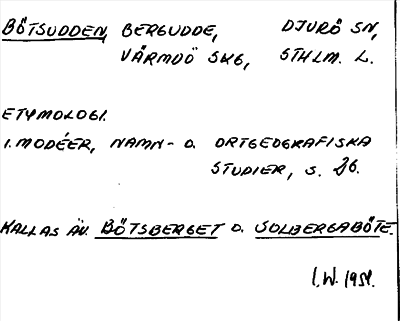 BÖTSUDDEN, BERGUDDE, DJURÖ SN,
VÄRMDÖ SKG, STHLM. L.
ETYMOLOGI.
I. MODÉER, NAMN- O. ORTGEOGRAFISKA
STUDIER, S. 26.
KALLAS ÄV. BÖTSBERGET O. SOLBERGABÖTE.
I.W. 1951.